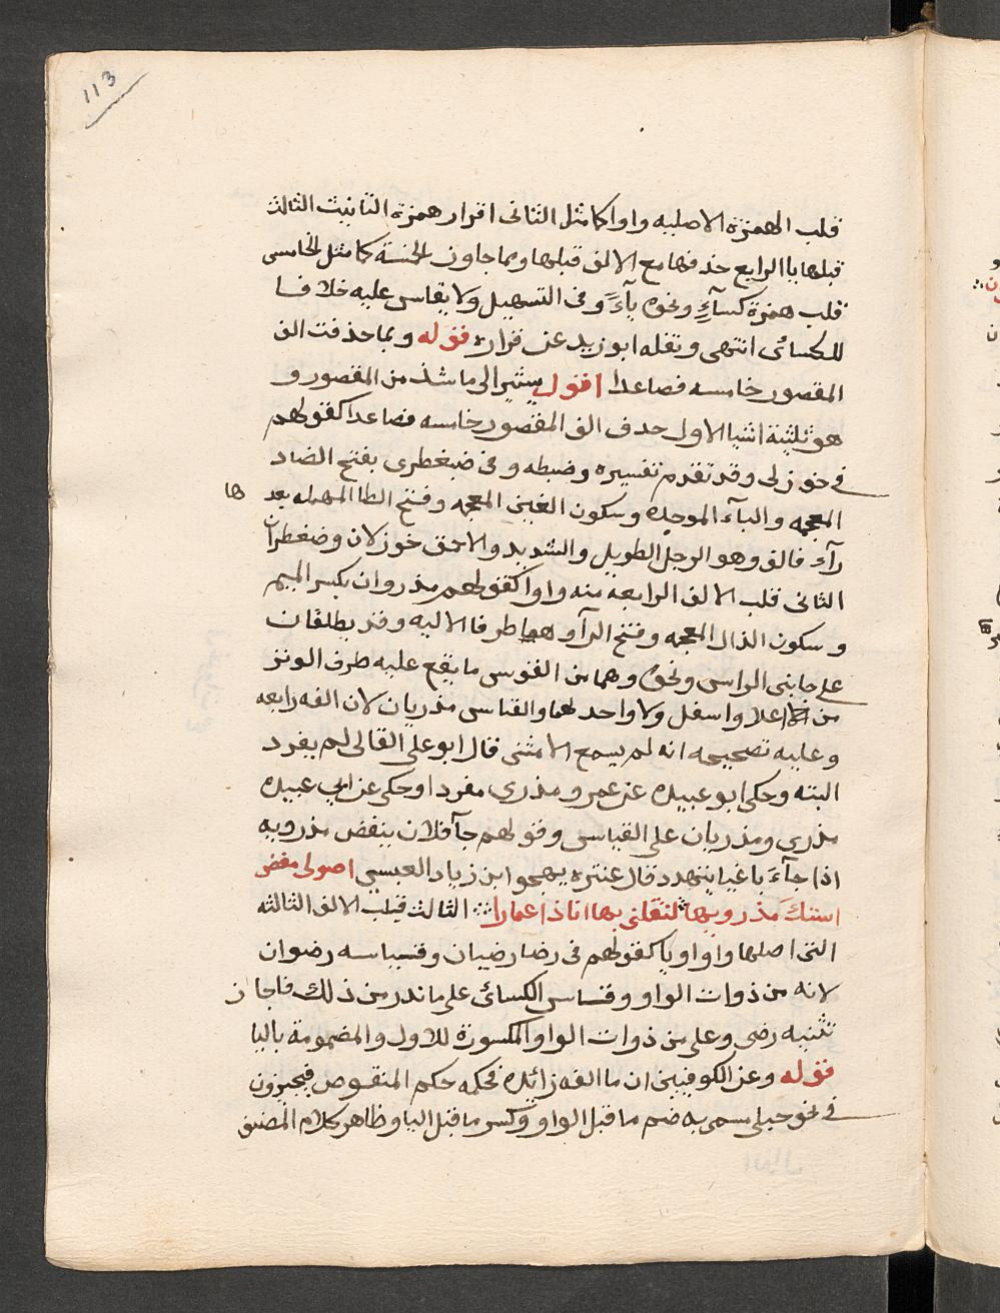 113
قلب الهمزة الاصليه واوا كامثل الثانى اقرار همزة التانيث الثالث
قبلها يا الرابع حذفها مع الالف قبلها وبما جاوز الخمسة كامثل الخامس
قلب همزة كسآءٍ ونحوه يآءً وفى التسهيل ولا يقاس عليه خلافا
للكسائى انتهى ونقله ابو زيد عن قزاره قوله وبما حذفت الف
المقصور خامسه فصاعدا اقول يشير الى ما شذ من المقصور و
هو ثلثية اشيا الاول حذف الف المقصور خامسه فصاعدا كقولهم
فى خوزلى وقد تقدم تفسيره وضبطه وفى ضبغطرى بفتح الضاد
المعجمه والبآء الموحده وسكون الغين المعجمه وفتح الطا المهمله بعد ها
رآء فالف وهو الرجل الطويل والشديد والاحمق خوزلان وضبغطران
الثانى قلب الالف الرابعه منه واوا كقولهم مذروان بكسر الميم
وسكون الذال المعجمه وفتح الرآ وهما طرفا الاليه وقد يطلقان
على جانبى الراس ونحوه وهما من القوس ما يقع عليه طرف الوتر
من اعلا واسفل ولا واحد لهما والقياس مذريان لان الفه رابعه
وعليه تصحيحه انه لم يسمع الا مثنى قال ابو على القالى لم يفرد
البته وحكى ابو عبيده عن عمرو مذرى مفردا وحكى عن ابى عبيده
مذرى ومذريان على القياس وقولهم جآ فلان ينفض مذرويه
اذا جآء باغيا يتهدد قال عنتره يهجوا ابن زياد العبسى احولى تنفض
استك مذرويها لتقتلنى بها انا ذا عمارا الثالث قلب الالف الثالثه
التى اصلها واو او يا كقولهم فى رضا رضيان وقياسه رضوان
لانه من ذوات الواو وقاس الكسائى على ما ندر من ذلك فاجاز
تثنيه رضى وعلى من ذوات الواو المكسورة للاول والمضمومة باليا
قوله وعن الكوفيين ان ما الفه زائده فحكمه حكم المنقوص فيجيزون
فى نحو حبلى مسمى به ضم ما قبل الواو وكسر ما قبل اليا وظاهر كلام المصنف